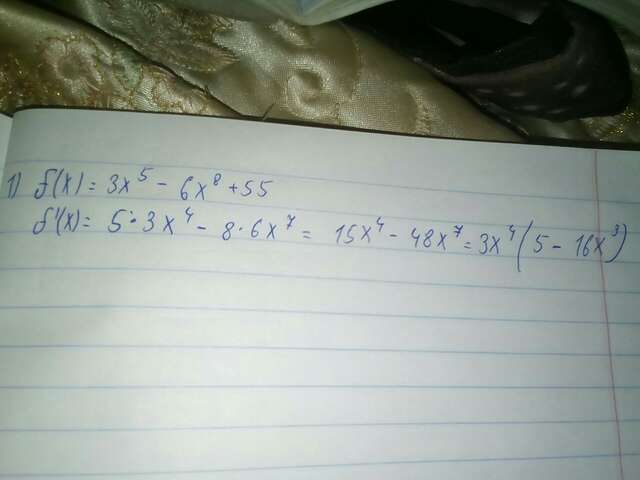 1) f(x) = 3x⁵ - 6x⁸ + 55
f'(x) = 5·3x⁴ - 8·6x⁷ = 15x⁴ - 48x⁷ = 3x⁴(5 - 16x³)